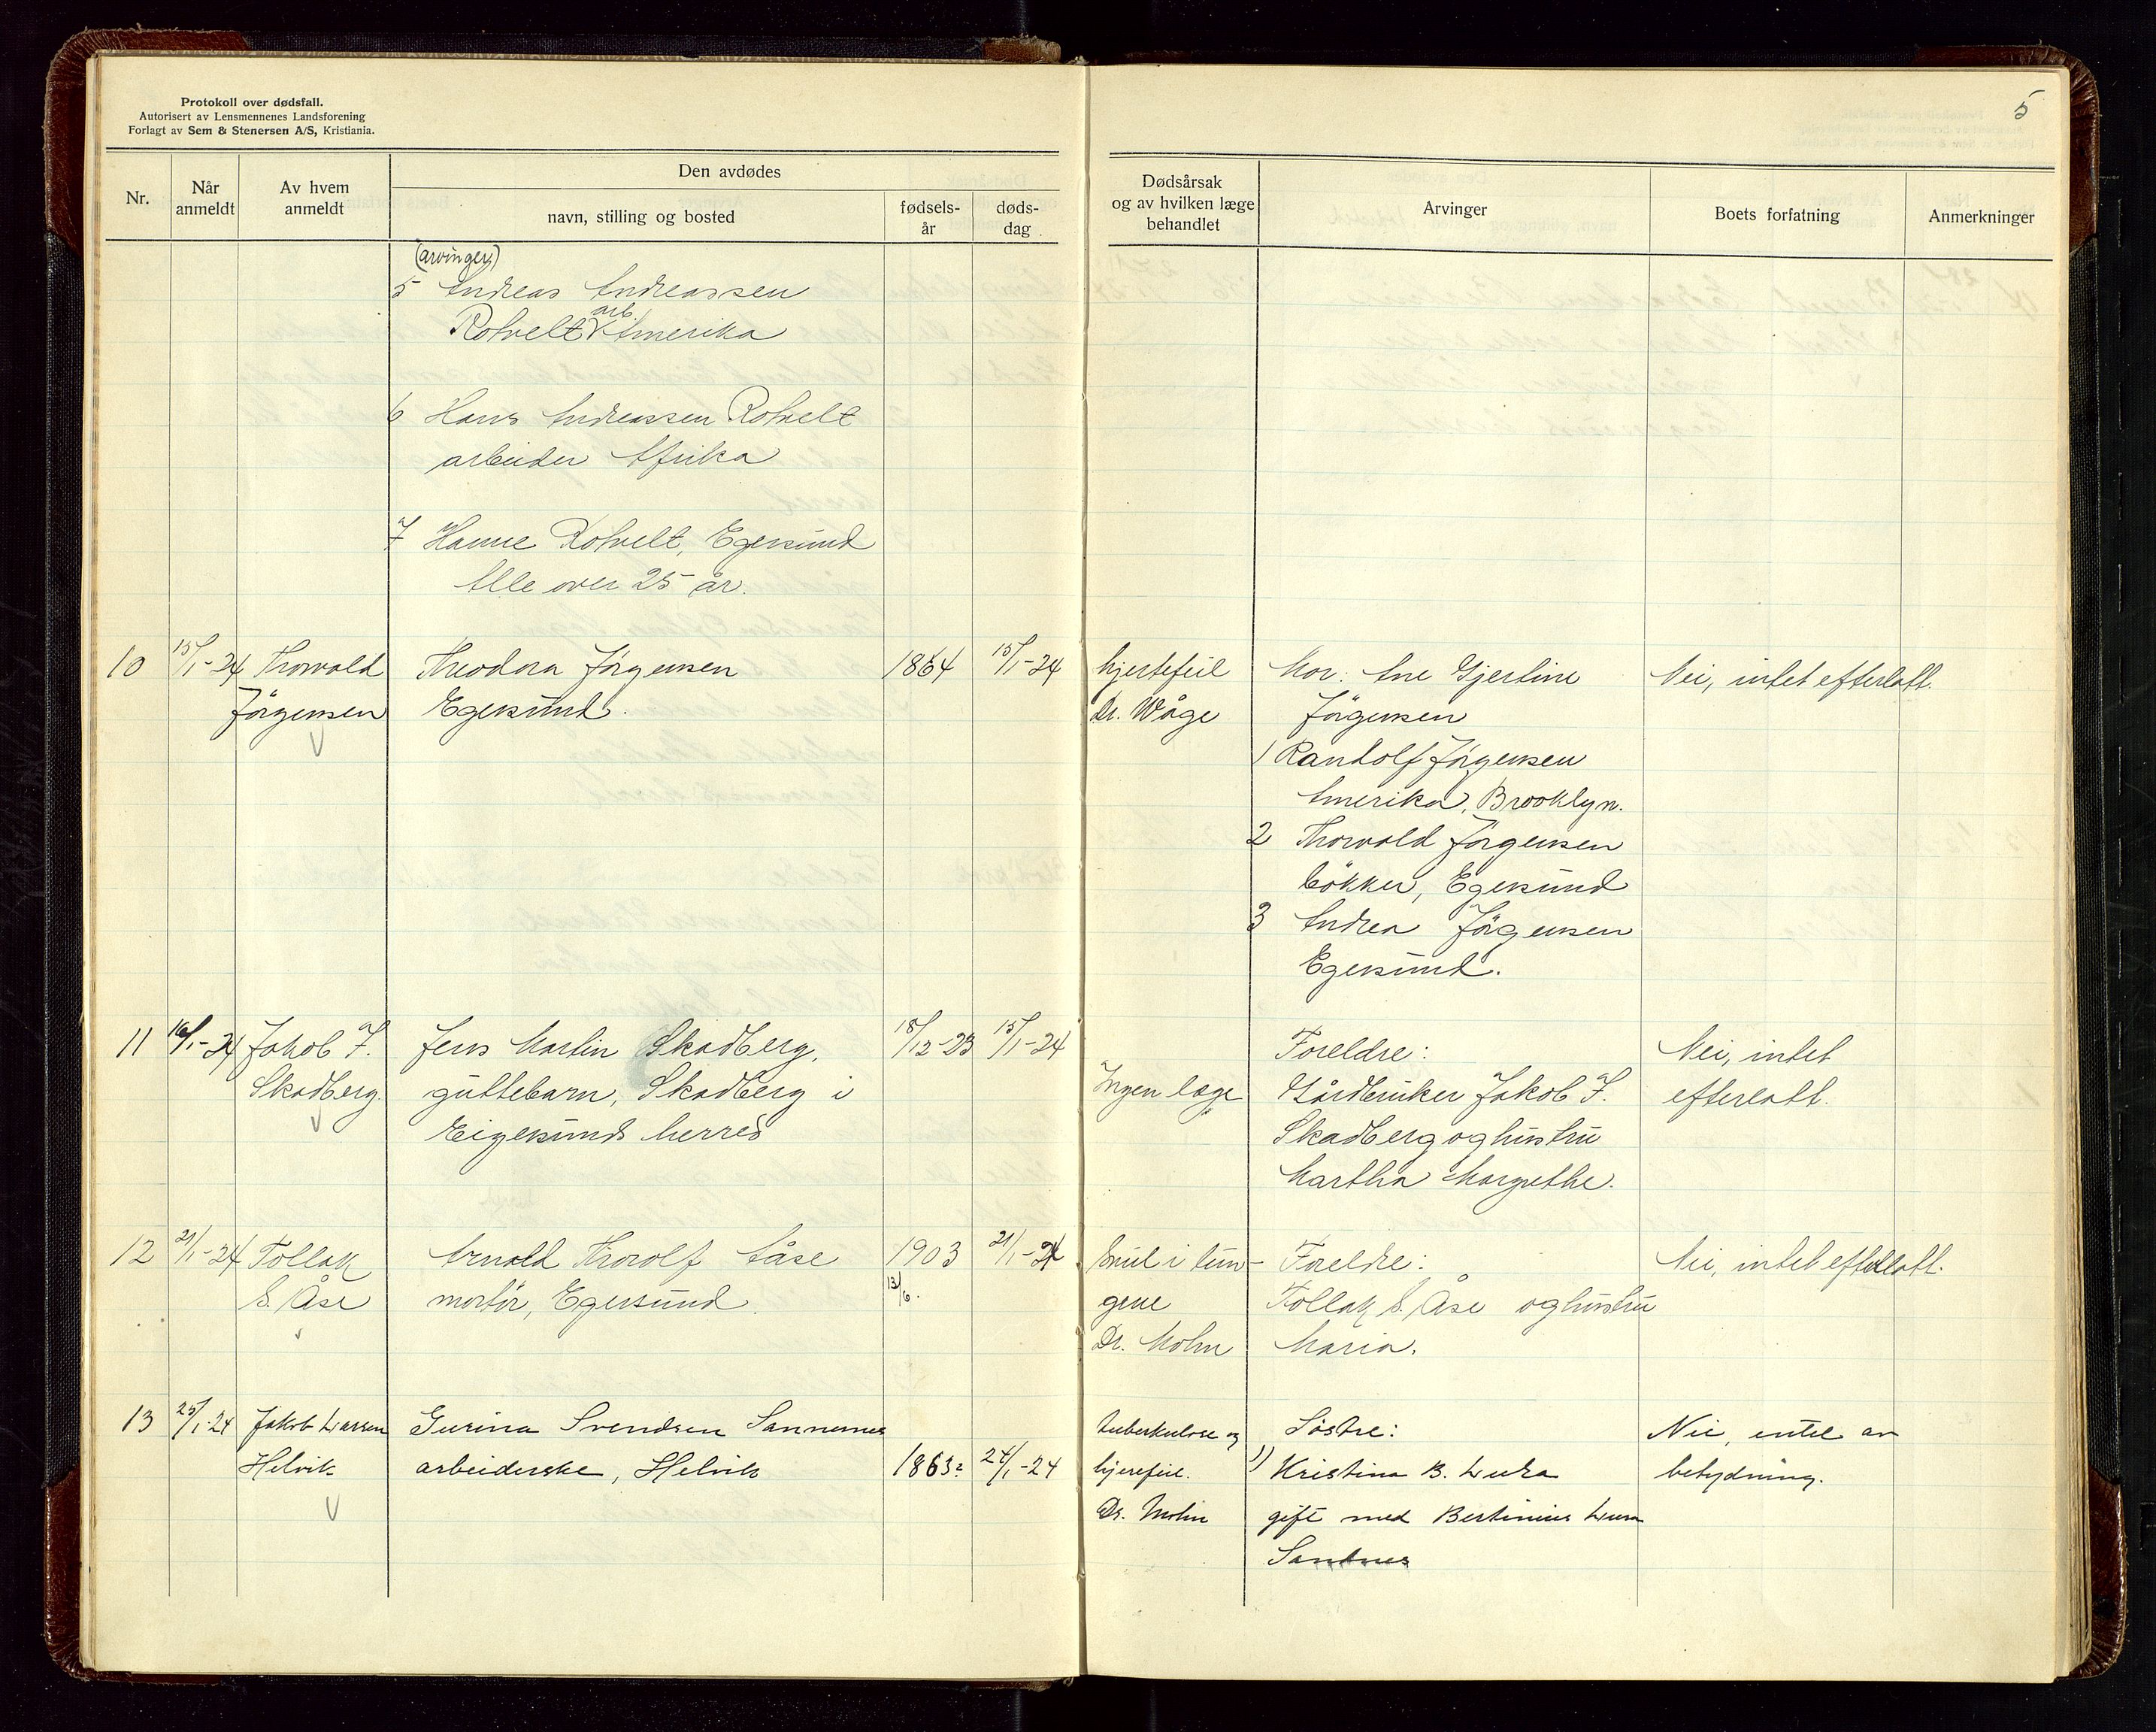 Protokoll over dødsfall.
Autorisert av Lensmennenes Landsforening
Forlagt av Sem & Stenersen A/S, Kristiania.
5
Nr.
Når anmeldt
Av hvem anmeldt
Den avdødes
navn, stilling og bosted
fødsels-år
døds-dag
Dødsårsak og av hvilken læge behandlet
Arvinger
Boets forfatning
Anmerkninger
(arvinger)
5 Andreas Andreassen
arb.
Rotvelt Amerika
6 Hans Andreassen Rotvelt
arbeider Afrika
7 Hanne Rotvelt, Egersund
Alle over 25 år.
10 15/1-24 Thorvald Theodora Jörgensen 1864 15/1-24 hjertefeil Mor: Ane Gjertine Nei, intet efterlatt.
Jörgensen Egersund. Dr. Wåge Jörgensen
1 Randolf Jörgensen
Amerika, Brooklyn.
2 Thorvald Jörgensen
bökker, Egersund
3 Andrea Jörgensen
Egersund.
11 16/1-24 Jakob J. Jens Martin Skadberg, 18/12-23 15/1-24 Foreldre: Nei, intet
Skadberg. guttebarn, Skadberg i Ingen læge Gårdbruker Jakob J. efterlatt.
Eigersunds herred Skadberg og hustru
Martha Margrethe.
12 21/1-24 Tollak Arnold Thorolf Aåse 1903 21/1-24 Foreldre: Nei, intet efterlatt.
S. Åse Egersund. 13/6. gene Tollak S. Åse og hustru
Dr. Mohn Maria.
13 25/1-24 Jakob Larsen Gurina Svendsen Sannernes tuberkulose og Søstre: Nei, intet av
Helvik arbeiderske, Helvik 1863? 24/1-24 hjerefeil. 1) Kristina B. Lura betydning.
Dr. Mohn gift med Bertinius Lura
Sandnes